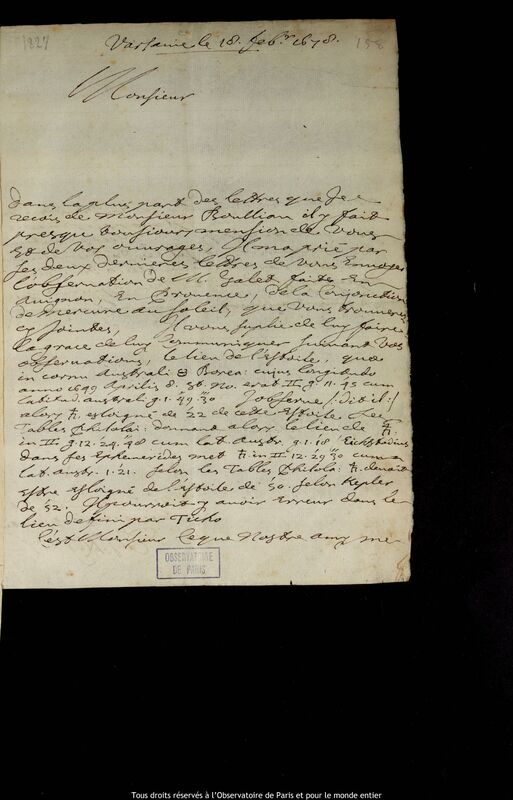 1827
158
Varsavie le 18. Feb.r 1678.
Monsieur
dans la plus part des lettres que Je
recois de Monsieur Boulliau il y fait
presque tousjours mension de Vous
Et de Vos ouvrages, Il m'a prié par
ses deux dernieres lettres de vous Envoyer
l'observation de M. Galet faite En
Avignon, En Provence, de la Conjonction
de Mercure au Soleil, que Vous trouverez
cy Jointes, Il vous suplie de luy faire
la grace de luy Communiquer suivant Vos
observations, le lieu de l'Estoile, quae
in cornu Australi ♉ Borea: cujus longitudo
anno 1649 Aprilis 8. St. No. erat II g. 11. 45 cum
latitud. austral. g. 1. 49. 30 J'observe /: dit il :/
alors ♄ esloigné de 22 de cette Estoile Les
Tables Philolai: donnent alors le lieu de ♄.
in II g. 12. 24. 48 cum lat. Austr. g. 1. 18 Eichstadius
dans ses Ephemerides met ♄ in II. 12. 29 30 cum
lat. austr. 1. 21. Selon les Tables Philola: ♄. devait
Estre esloigné de l'Estoile de 50. Selon Kepler
de 52. Il pourroit y avoir Erreur dans le
lieu defini par Ticho
C'est Monsieur ce que Nostre amy me
OBSERVATOIRE
DE PARIS
Tous droits réservés à l'Observatoire de Paris et pour le monde entier